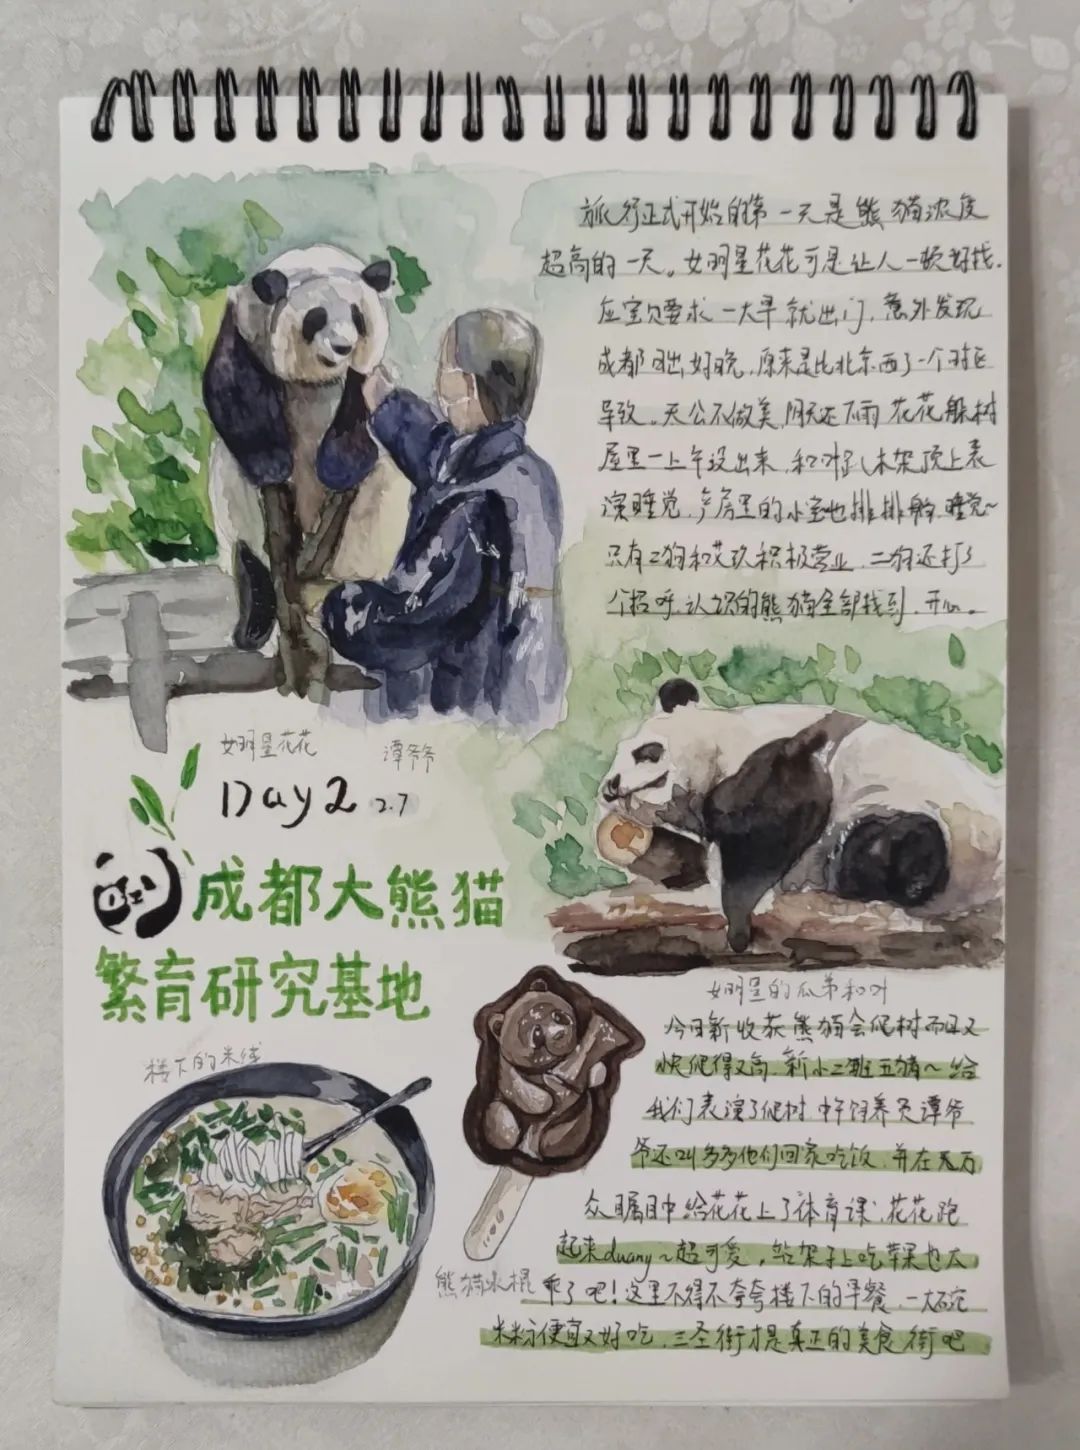 旅行正式开始的第一天是熊猫浓度
超高的一天。女明星花花可是让人一顿好找.
应宝贝要求一大早就出门,意外发现
成都日出好晚,原来是比北京西了一个时区
导致。天公不做美,阴天还下雨花花躲树
屋里一上午没出来,和叶趴木架顶上表
演睡觉,产房里的小宝也排排躺睡觉~
只有二狗和花玖积极营业,二狗还打了
个招呼,认识的熊猫全部找到,开心。
女明星花花
谭爷爷
Day2 2.7
成都大熊猫
繁育研究基地
女明星的瓜弟和叶
今日新收获熊猫会爬树而且又
快爬得又高,新小二班五猪~给
我们表演了爬树 中午饲养员谭爷
爷还叫多多他们回家吃饭,并在万
众瞩目中给花花上了体育课,花花跑
起来duang~超可爱,站架子上吃苹果也太
乖了吧!这里不得不夸夸楼下的早餐,一大碗
米粉便宜又好吃,三圣街才是真正的美食街吧
楼下的米线
熊猫冰棍